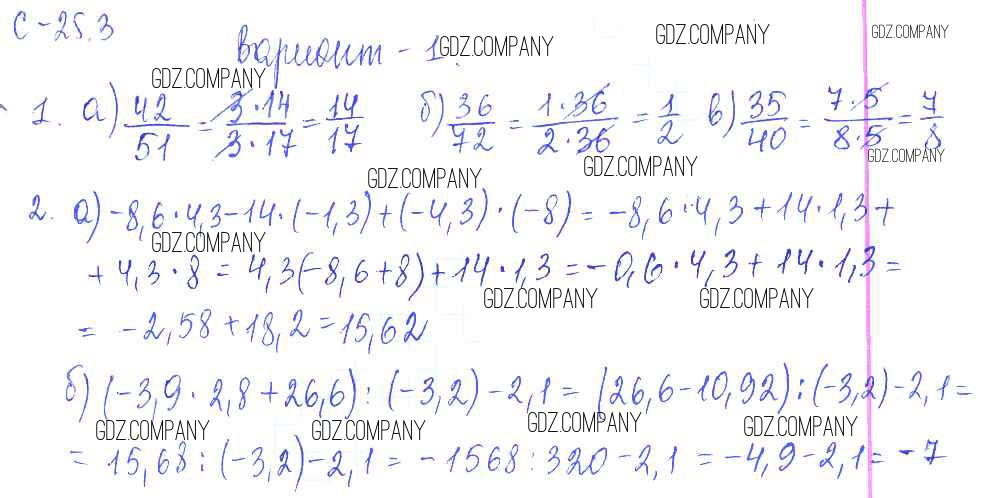 С-25.3
Вариант - 1. GDZ.COMPANY GDZ.COMPANY GDZ.COMPANY
GDZ.COMPANY
1. а) 42/51 = 3·14/3·17 = 14/17 б) 36/72 = 1·36/2·36 = 1/2 в) 35/40 = 7·5/8·5 = 7/8
GDZ.COMPANY GDZ.COMPANY GDZ.COMPANY
2. а) -8,6·4,3-14·(-1,3)+(-4,3)·(-8) = -8,6·4,3+14·1,3+
GDZ.COMPANY
+ 4,3·8 = 4,3(-8,6+8)+14·1,3 = -0,6·4,3+14·1,3 =
GDZ.COMPANY GDZ.COMPANY
= -2,58+18,2=15,62
б) (-3,9·2,8+26,6):(-3,2)-2,1 = (26,6-10,92):(-3,2)-2,1 =
GDZ.COMPANY GDZ.COMPANY GDZ.COMPANY GDZ.COMPANY
= 15,68:(-3,2)-2,1 = -1568:320-2,1 = -4,9-2,1 = -7